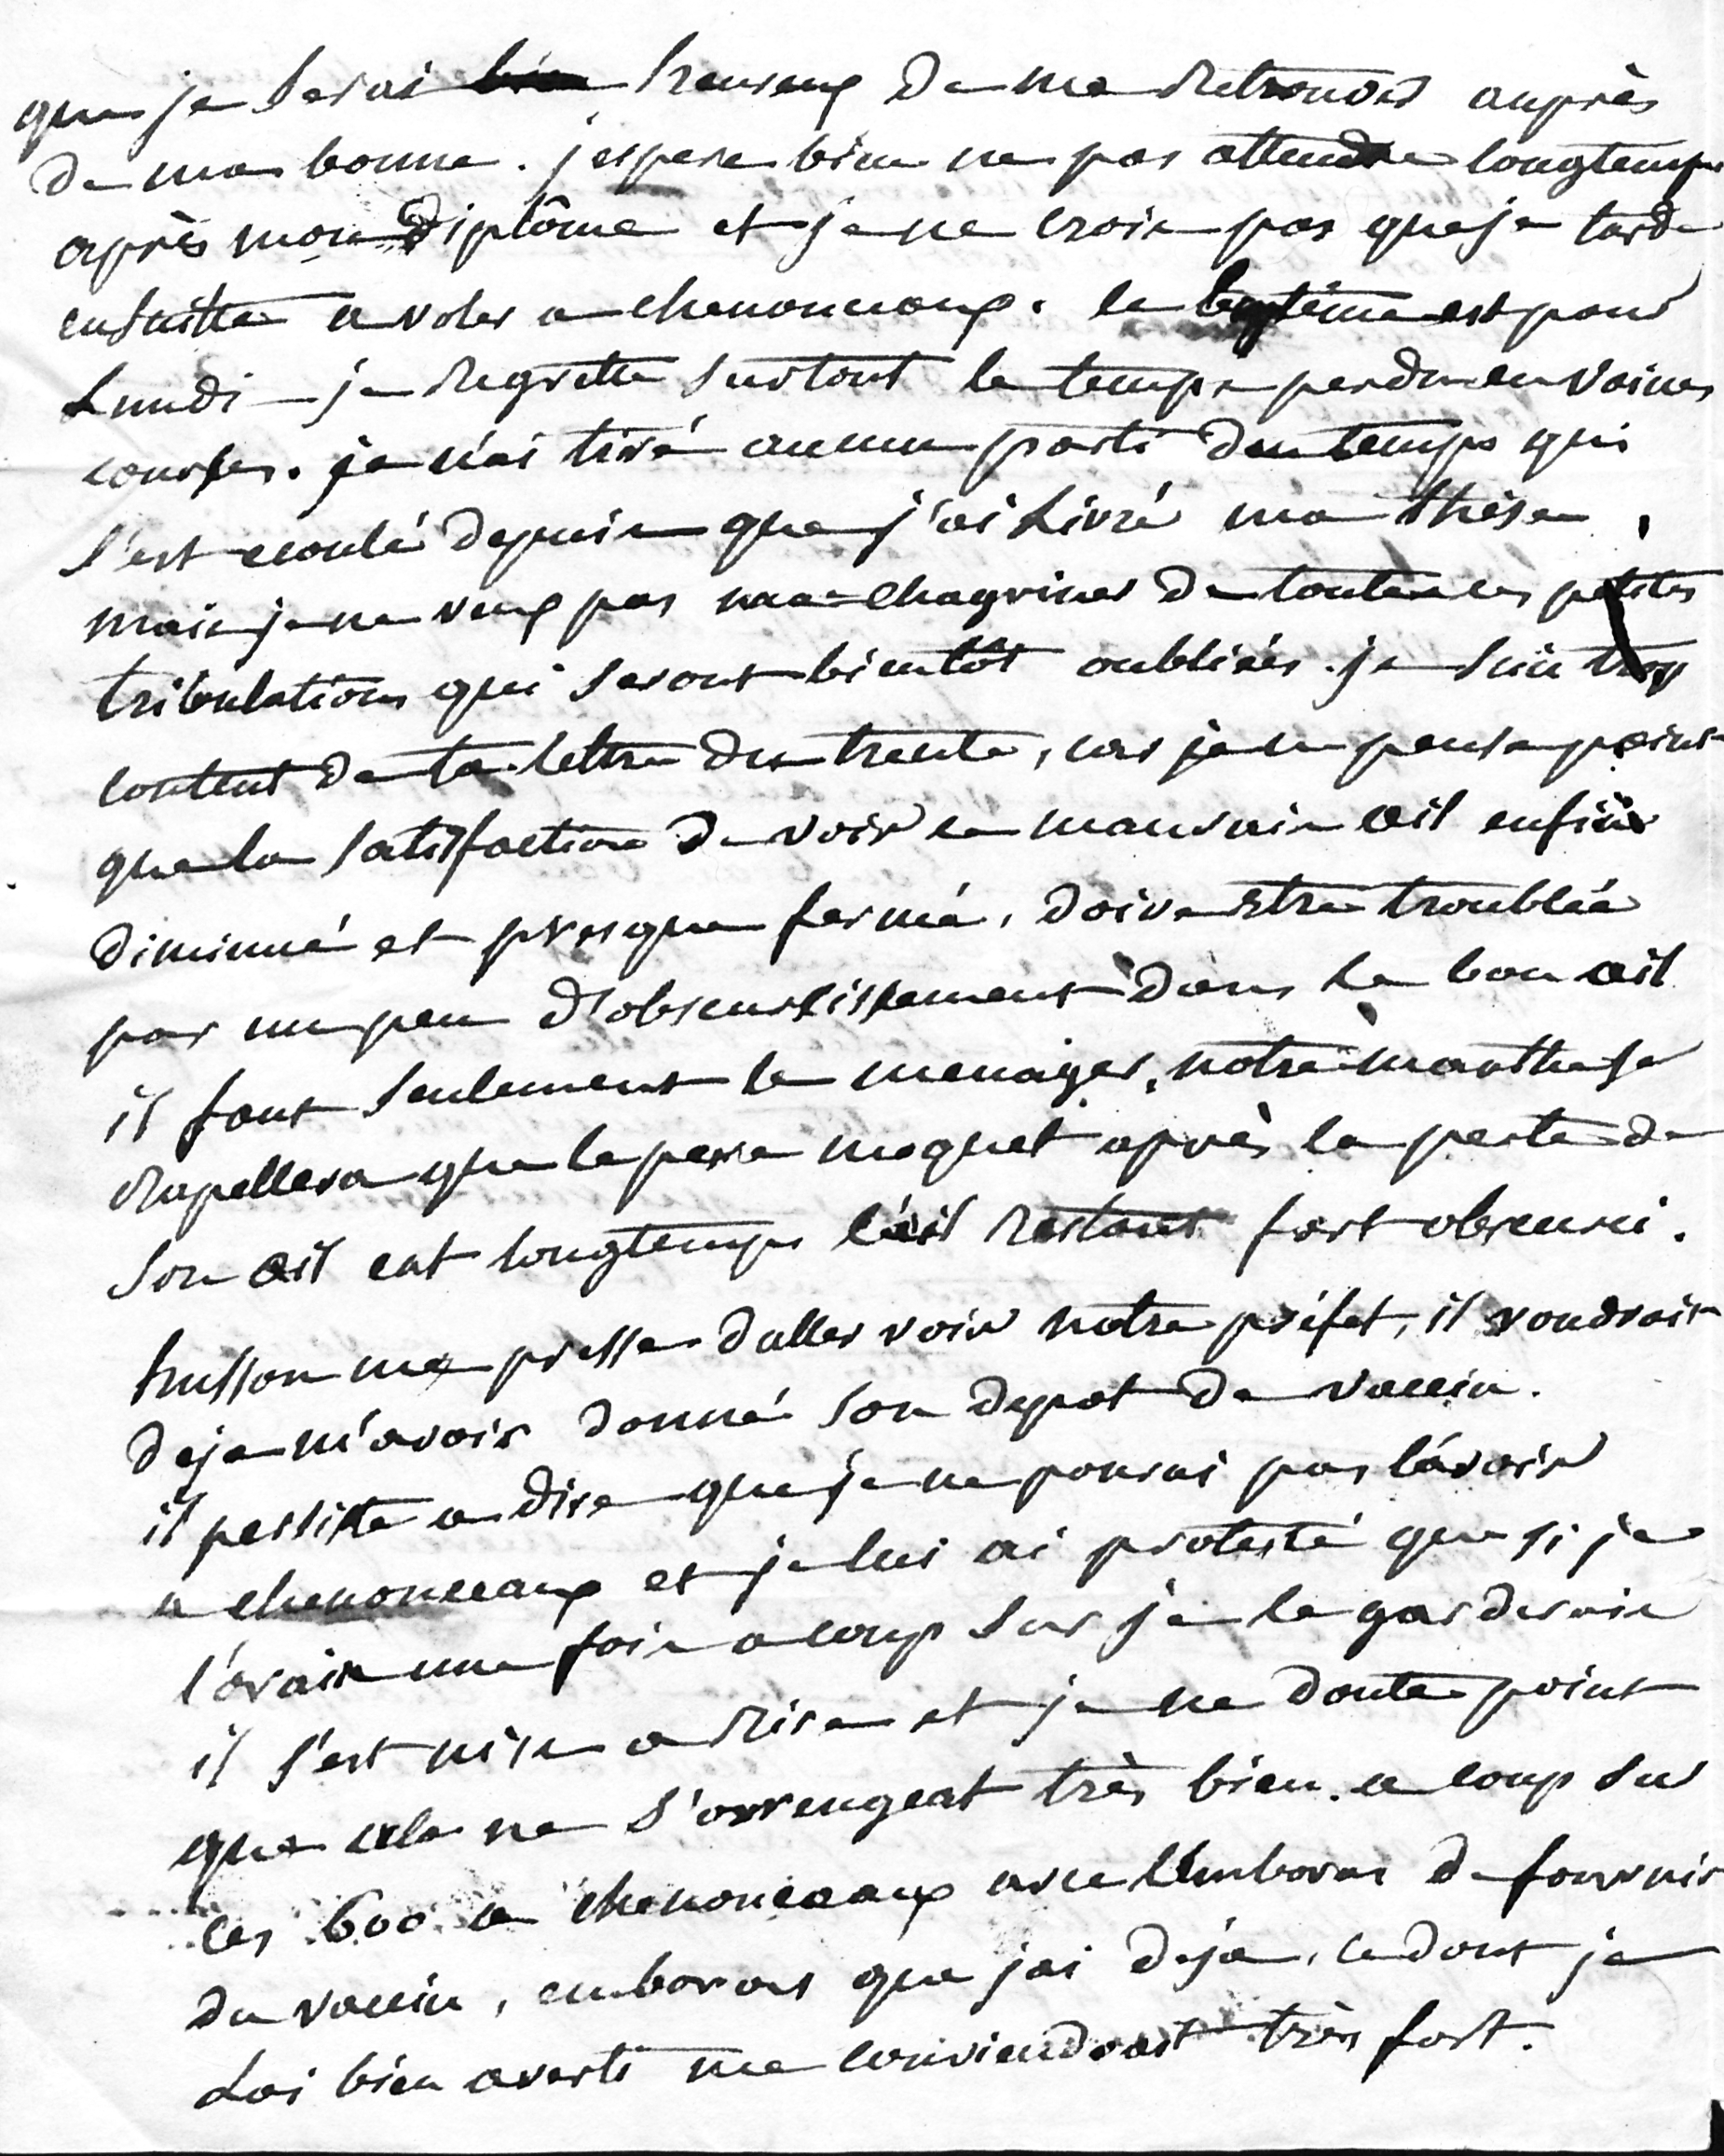 que je serai bien heureux de me retrouver auprès
de ma bonne. j'espere bien ne pas attendre longtemps
après mon diplôme et je ne crois pas que je tarde
ensuitte a voler a chenonceaux. le baptême est pour
Lundi – je regrette surtout le temps perdu en vaines
courses. je n'ai tiré aucun parti du temps qui
s'est ecoulé depuis que j'ai livré ma thèse.
mais je ne veux pas me chagriner de toutes les petites
tribulations qui seront bientôt oubliées. je suis trop
content de ta lettre du trente, car je ne pense point
que la satisfaction de voir le mauvais œil enfin
diminué et presque fermé, doive etre troublée
par un peu d'obscurcissement dans le bon œil
il faut seulement le menager, notre marthe se
rapellera que le pere moquet après la perte de
son œil eut longtemps l'œil restant fort obscurci.
husson me presse d'aller voir notre préfet, il voudrait
deja m'avoir donné son depot de vaccin.
il persiste a dire que je ne pourai pas l'avoir
a chenonceaux et je lui ai protesté que si je
l'avais une fois a coup sur je le garderais
il s'est mis a rire et je ne doute point
que cela ne s'arrengeat très bien. a coup sur
les 600 a chenonceaux avec l'embaras de fournir
du vaccin, embaras que j'ai dejà, ce dont je
l'ai bien averti me conviendrait très fort.